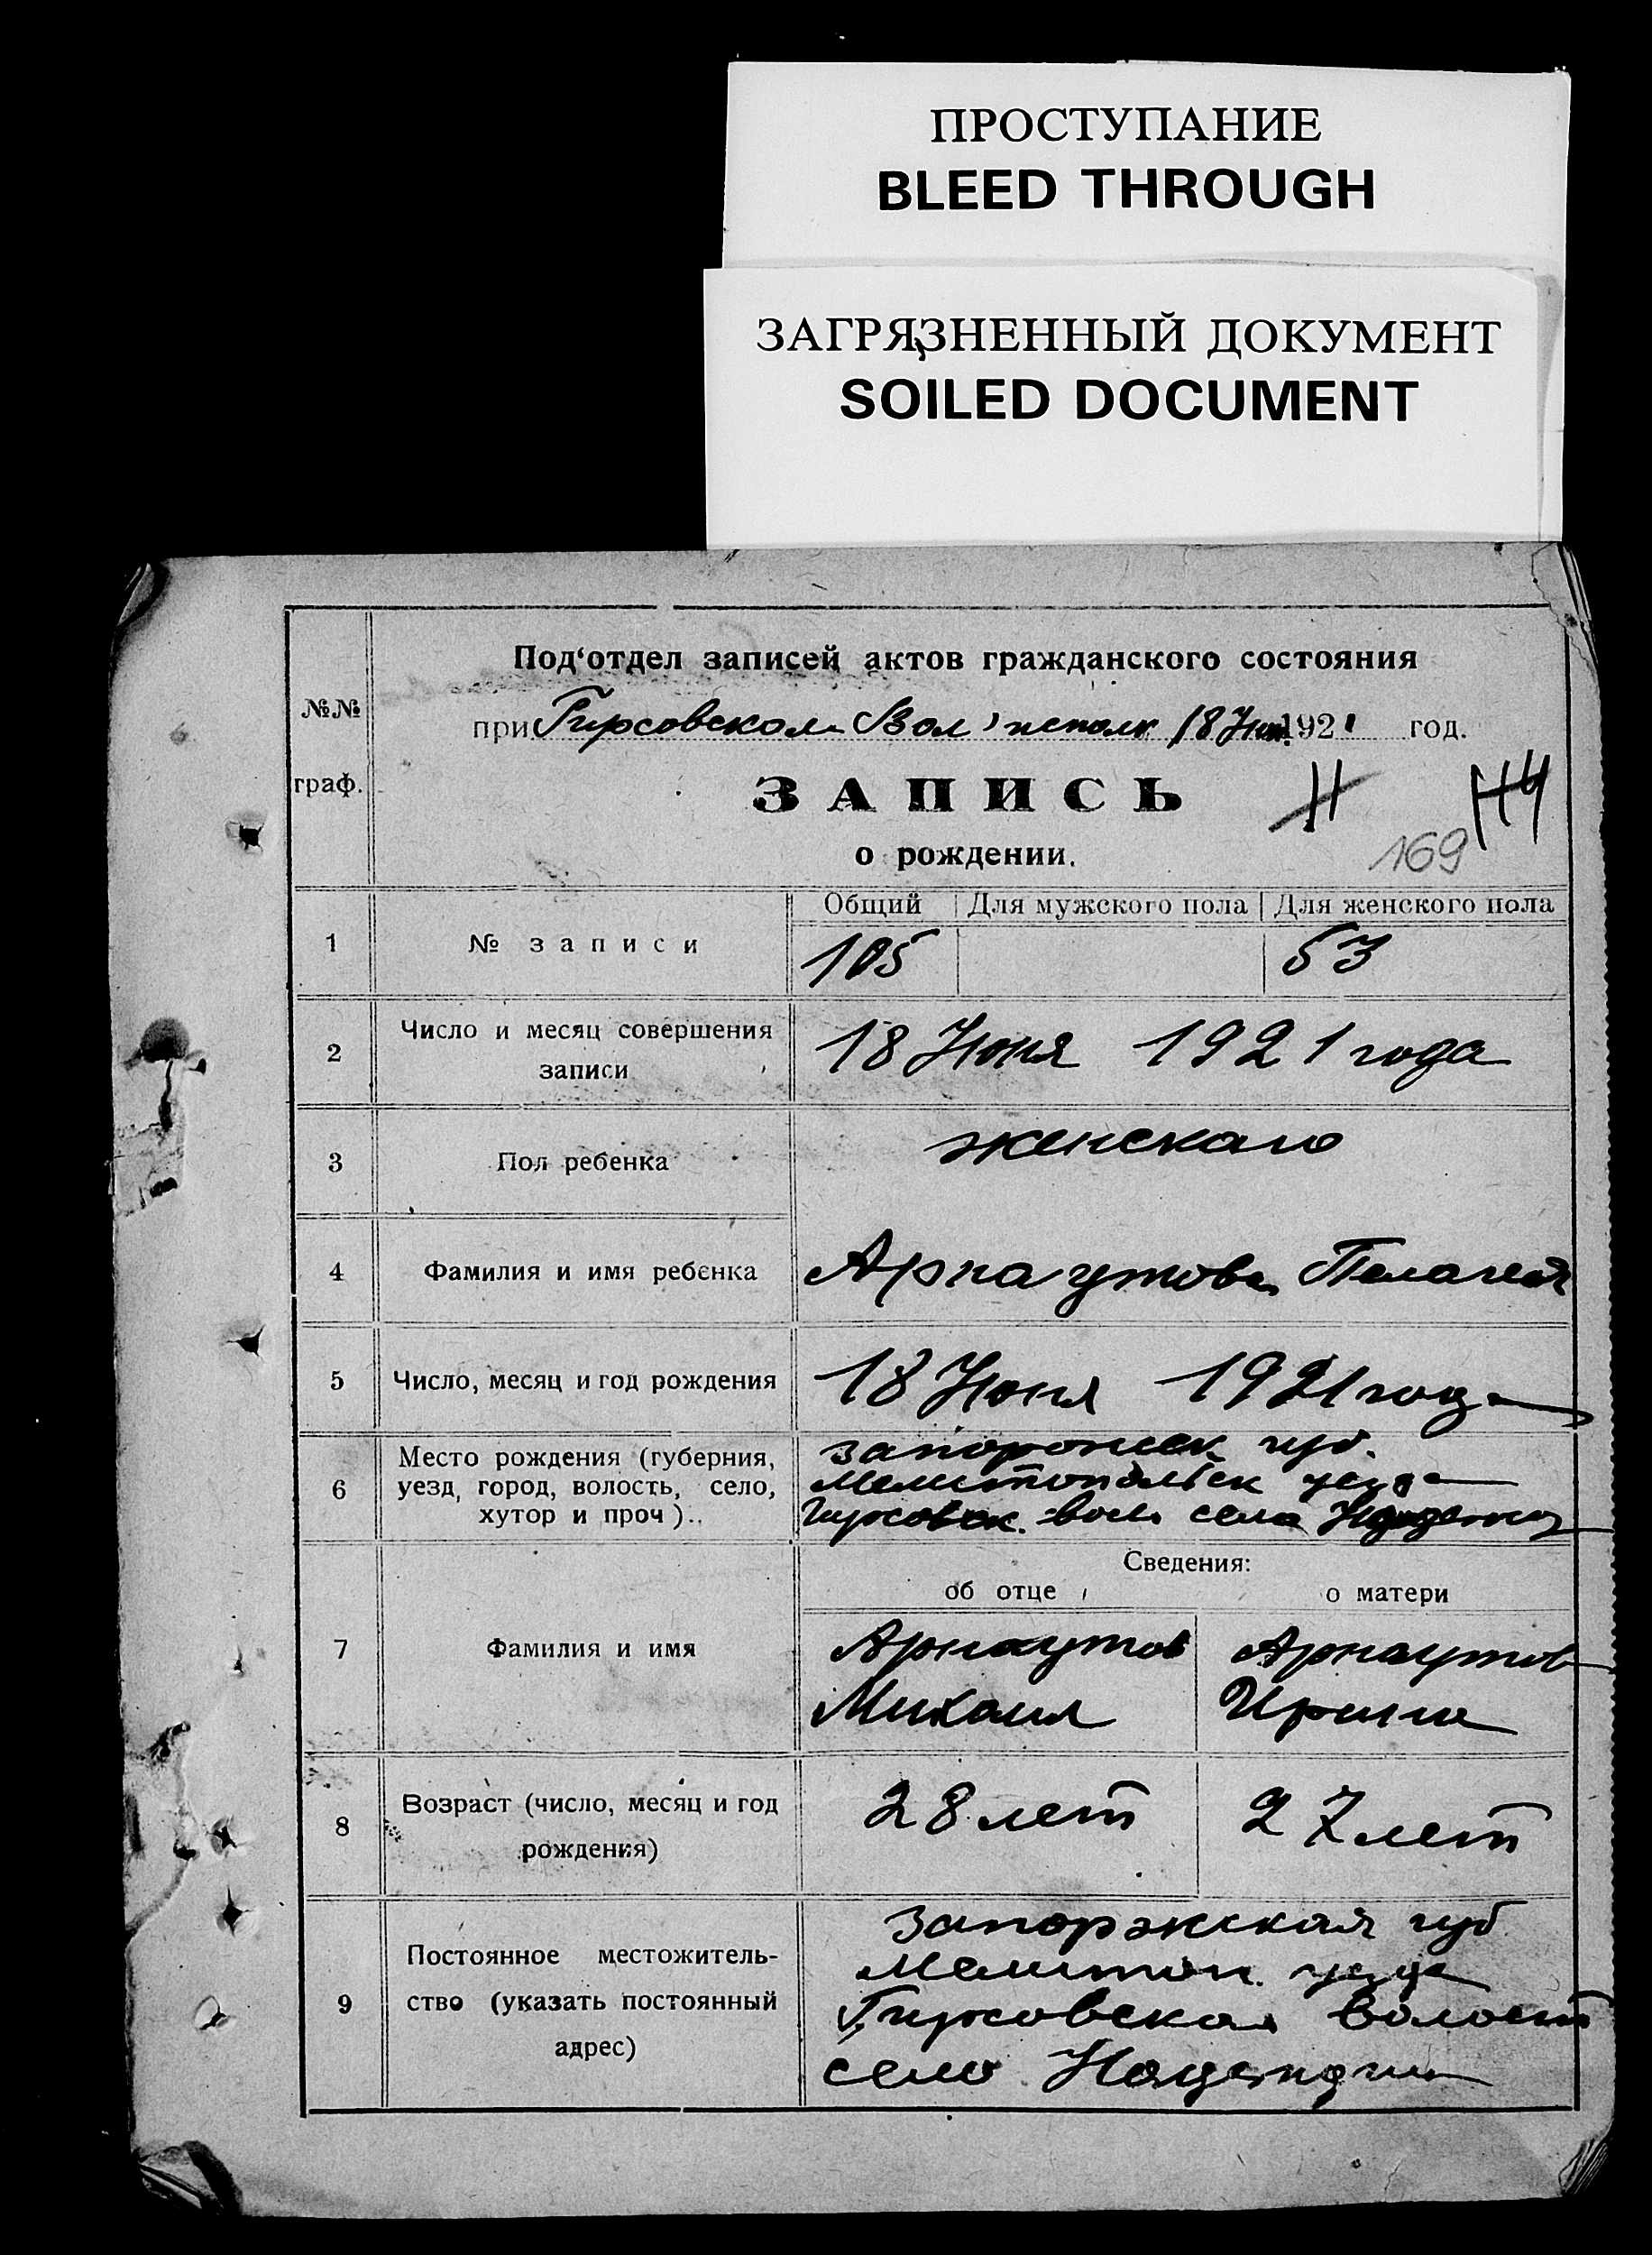 ПРОСТУПАНИЕ
BLEED THROUGH
ЗАГРЯЗНЕННЫЙ ДОКУМЕНТ
SOILED DOCUMENT
№№
граф.
Под‘отдел записей актов гражданского состояния
при Гирсовском Вол исполк 18 Июн. 1921 год.
ЗАПИСЬ
о рождении.
169
Общий Для мужского пола Для женского пола
1 № записи 105 53
2 Число и месяц совершения
записи
18 Июня 1921 года
3 Пол ребенка женскаго
4 Фамилия и имя ребенка Арнаутова Пелагея
5 Число, месяц и год рождения 18 Июня 1921 года
6 Место рождения (губерния,
уезд, город, волость, село,
хутор и проч)..
запорожск губ.
Мелитопольск уезда
Гирсовск. вол. села
Сведения:
об отце о матери
7 Фамилия и имя
Арнаутов Арнаутов
Михаил Ирина
8 Возраст (число, месяц и год
рождения)
28 лет 27 лет
9 Постоянное местожитель-
ство (указать постоянный
адрес)
Запоржская губ
Мелитоп. уезда
Гирсовская Волость
село